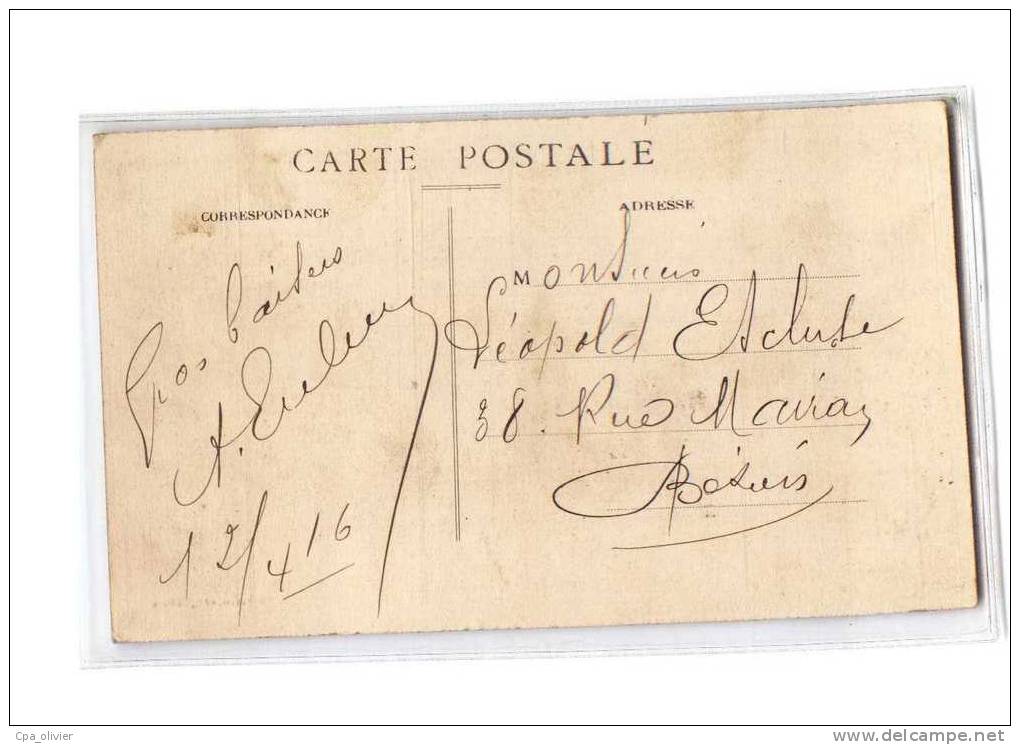 CARTE POSTALE
CORRESPONDANCE
ADRESSE
Gros baisers
A.
12/4/16
Monsieur
Léopold
38. Rue Mairan
Béziers
Cpa_olivier
www.delcampe.net